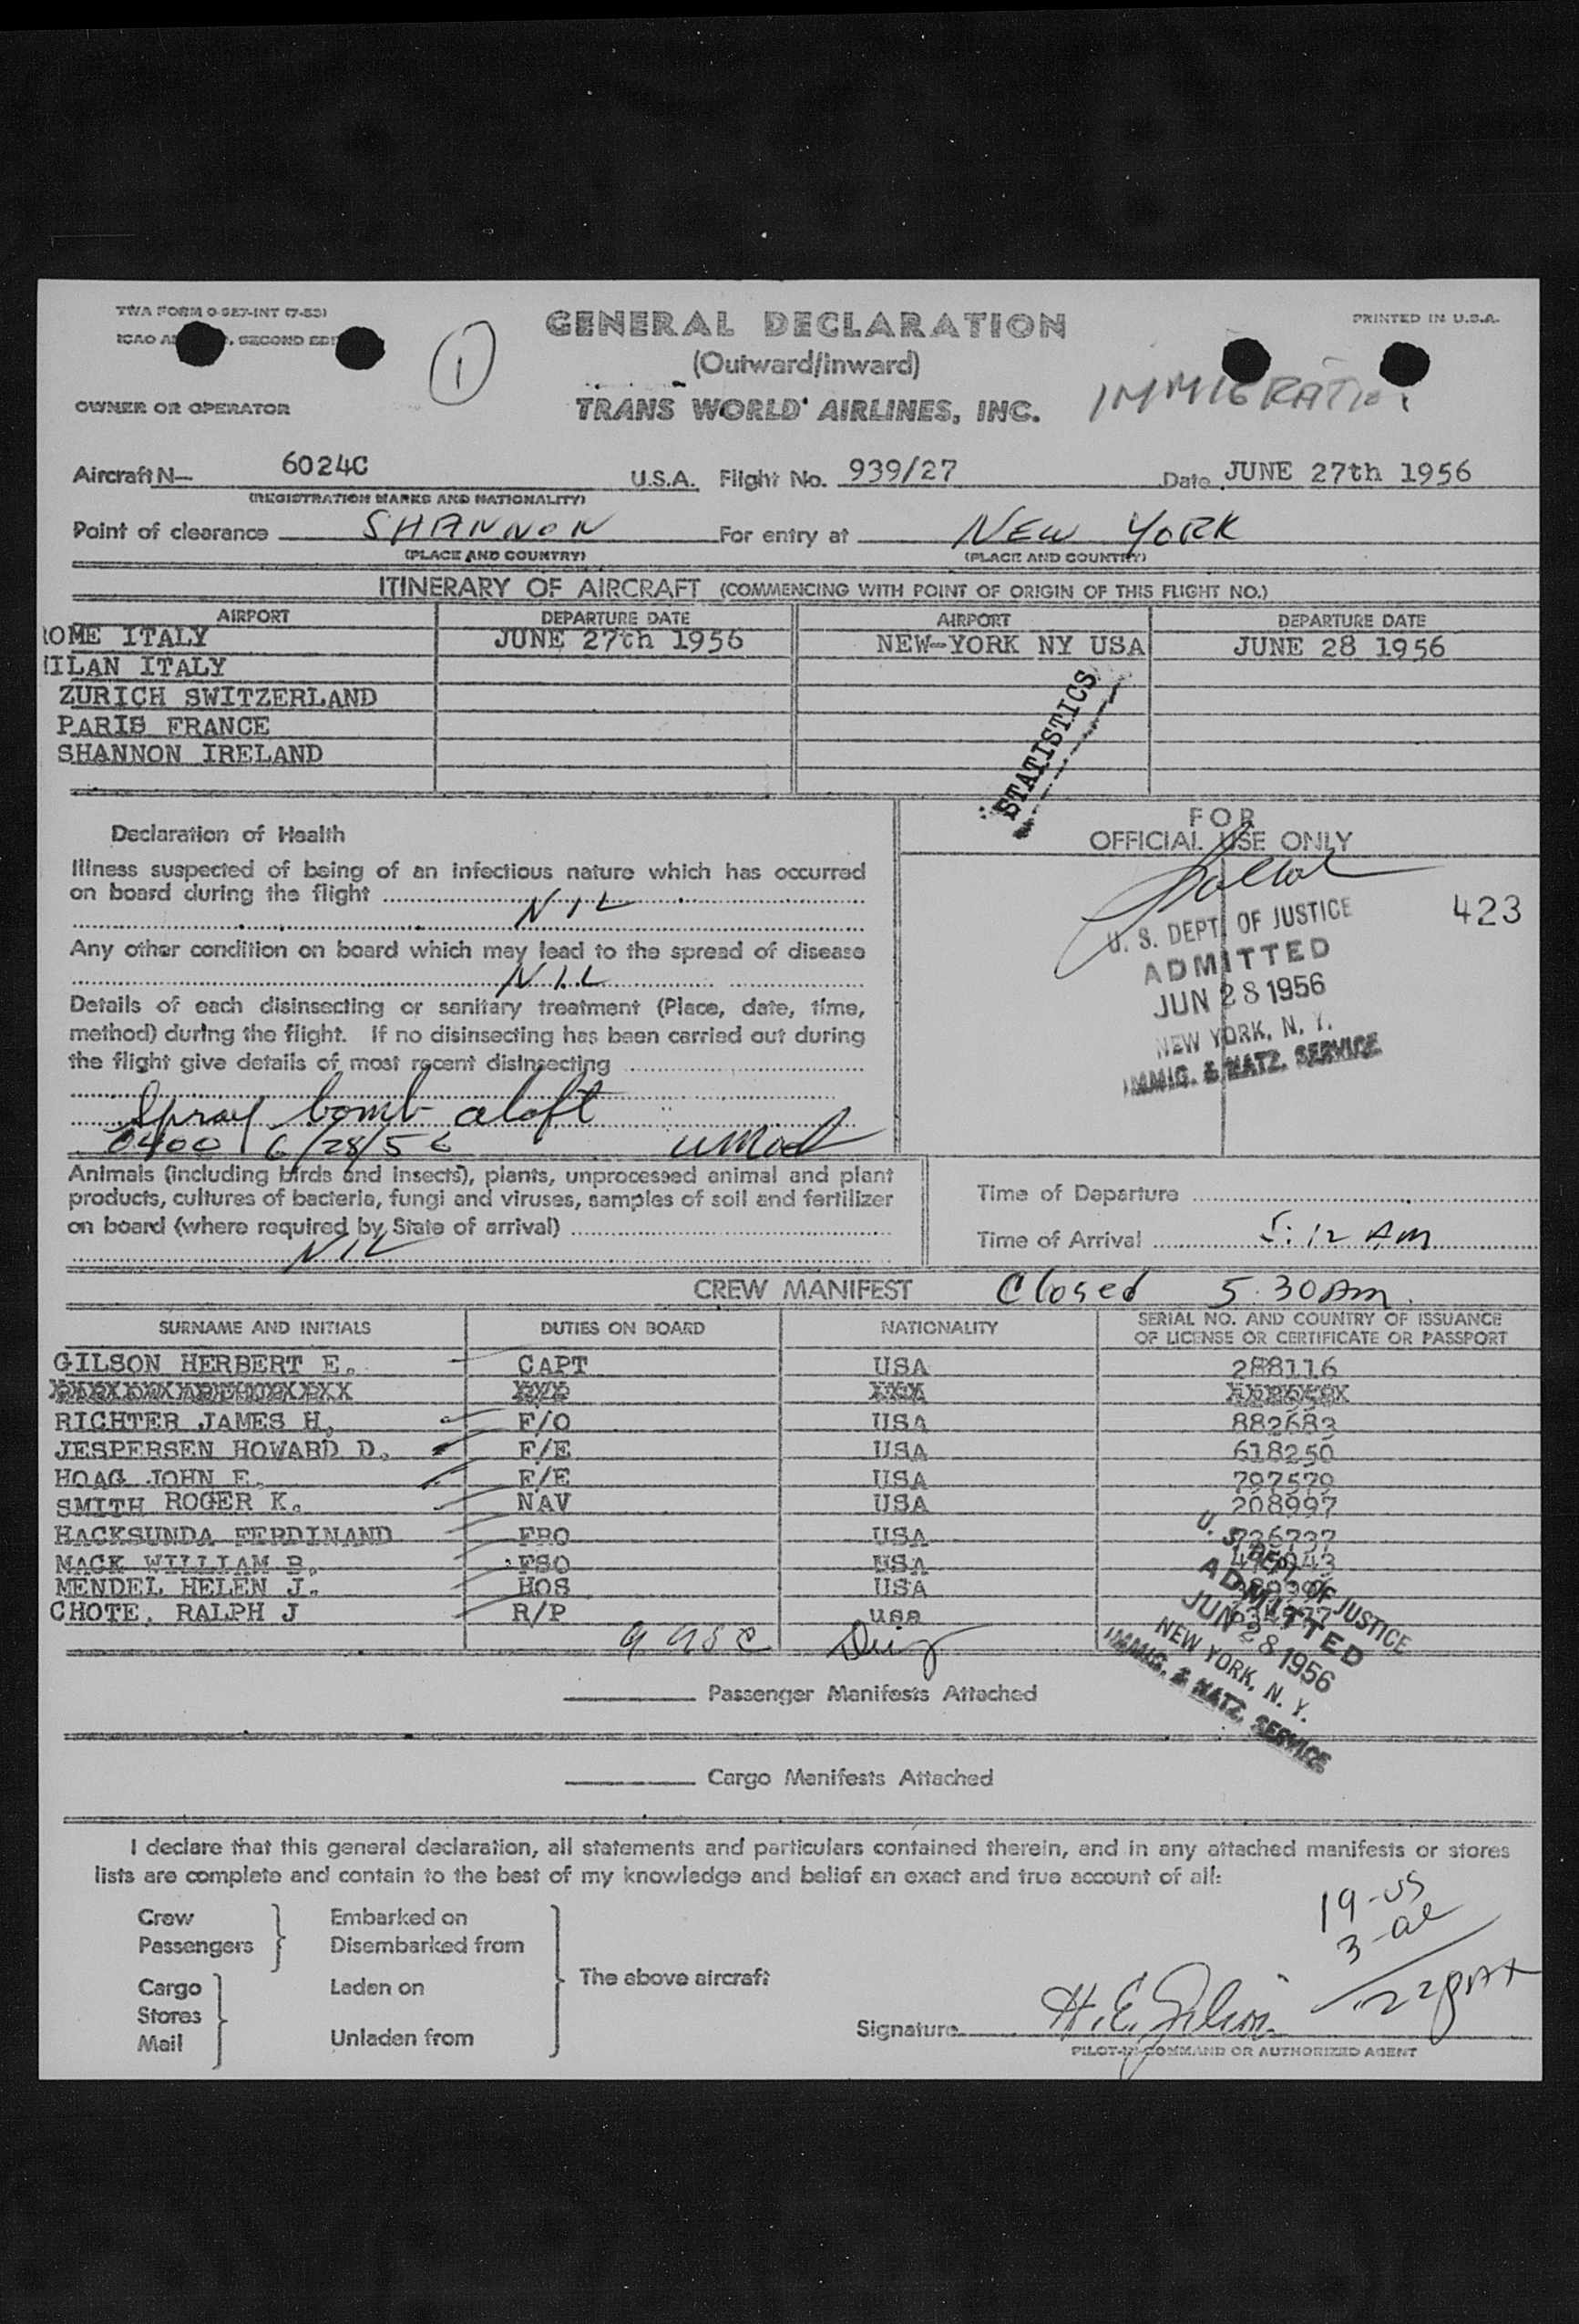 TWA FORM O-927-INT (7-53)
PRINTED IN U.S.A.
ICAO SECOND
1
GENERAL DECLARATION
(Outward/Inward)
IMMIGRATION
OWNER OR OPERATOR
TRANS WORLD AIRLINES, INC.
Aircraft N— 6024C U.S.A. Flight No. 939/27 Date JUNE 27th 1956
(REGISTRATION MARKS AND NATIONALITY)
Point of clearance SHANNON For entry at NEW YORK
(PLACE AND COUNTRY) (PLACE AND COUNTRY)
ITINERARY OF AIRCRAFT (COMMENCING WITH POINT OF ORIGIN OF THIS FLIGHT NO.)
AIRPORT DEPARTURE DATE AIRPORT DEPARTURE DATE
ROME ITALY JUNE 27th 1956 NEW-YORK NY USA JUNE 28 1956
MILAN ITALY
ZURICH SWITZERLAND
PARIS FRANCE
SHANNON IRELAND
STATISTICS
Declaration of Health
Illness suspected of being of an infectious nature which has occurred
on board during the flight
NIL
Any other condition on board which may lead to the spread of disease
NIL
Details of each disinsecting or sanitary treatment (Place, date, time,
method) during the flight. If no disinsecting has been carried out during
the flight give details of most recent disinsecting
Spray bomb aloft
0400 6/28/56
FOR
OFFICIAL USE ONLY
423
U. S. DEPT. OF JUSTICE
ADMITTED
JUN 28 1956
NEW YORK, N. Y.
IMMIG. & NATZ. SERVICE
Animals (including birds and insects), plants, unprocessed animal and plant
products, cultures of bacteria, fungi and viruses, samples of soil and fertilizer
on board (where required by State of arrival)
NIL
Time of Departure
Time of Arrival 5:12 AM
CREW MANIFEST Closed 5.30 AM.
SURNAME AND INITIALS DUTIES ON BOARD NATIONALITY SERIAL NO. AND COUNTRY OF ISSUANCE
OF LICENSE OR CERTIFICATE OR PASSPORT
GILSON HERBERT E. CAPT USA 288116
RICHTER JAMES H. F/O USA 882683
JESPERSEN HOWARD D. F/E USA 618250
HOAG JOHN E. F/E USA 797579
SMITH ROGER K. NAV USA 208997
HACKSUNDA FERDINAND FRO USA
MACK WILLIAM B. FSO USA
MENDEL HELEN J. HOS USA
CHOTE. RALPH J R/P usa
9 USC
U. S. DEPT. OF JUSTICE
ADMITTED
JUN 28 1956
NEW YORK, N. Y.
IMMIG. & NATZ. SERVICE
Passenger Manifests Attached
Cargo Manifests Attached
I declare that this general declaration, all statements and particulars contained therein, and in any attached manifests or stores
lists are complete and contain to the best of my knowledge and belief an exact and true account of all:
19-US
3-al
22 pax
Crew Embarked on
Passengers Disembarked from
The above aircraft
Cargo Laden on
Stores
Mail Unladen from
Signature H. E. Gilson
PILOT-IN-COMMAND OR AUTHORIZED AGENT